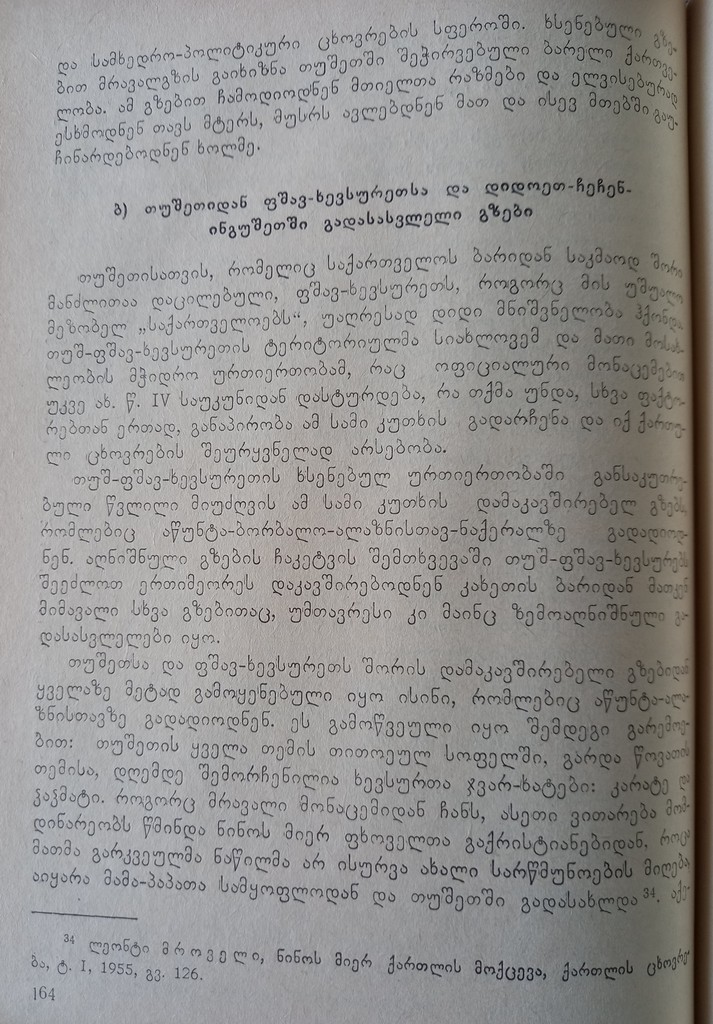 და სამხედრო-პოლიტიკური ცხოვრების სფეროში. ხსენებული გზე-
ბით მრავალგზის გაიხიზნა თუშეთში შეჭირვებული ბარელი ქართვე-
ლობა. ამ გზებით ჩამოდიოდნენ მთიელთა რაზმები და ელვისებურად
ესხმოდნენ თავს მტერს, მუსრს ავლებდნენ მათ და ისევ მთებში გაუ-
ჩინარდებოდნენ ხოლმე.
ბ) თუშეთიდან ფშავ-ხევსურეთსა და დიდოეთ-ჩეჩენ-
ინგუშეთში გადასასვლელი გზები
თუშეთისათვის, რომელიც საქართველოს ბარიდან საკმაოდ შორი
მანძილითაა დაცილებული, ფშავ-ხევსურეთს, როგორც მის უშუალო
მეზობელ „საქართველოებს“, უაღრესად დიდი მნიშვნელობა ჰქონდა.
თუშ-ფშავ-ხევსურეთის ტერიტორიულმა სიახლოვემ და მათი მოსახ-
ლეობის მჭიდრო ურთიერთობამ, რაც ოფიციალური მონაცემებით
უკვე ახ. წ. IV საუკუნიდან დასტურდება, რა თქმა უნდა, სხვა ფაქტო-
რებთან ერთად, განაპირობა ამ სამი კუთხის გადარჩენა და იქ ქართუ-
ლი ცხოვრების შეურყვნელად არსებობა.
თუშ-ფშავ-ხევსურეთის ხსენებულ ურთიერთობაში განსაკუთრე-
ბული წვლილი მიუძღვის ამ სამი კუთხის დამაკავშირებელ გზებს,
რომლებიც აწუნტა-ბორბალო-ალაზნისთავ-ნაქერალზე გადადიოდ-
ნენ. აღნიშნული გზების ჩაკეტვის შემთხვევაში თუშ-ფშავ-ხევსურებს
შეეძლოთ ერთიმეორეს დაკავშირებოდნენ კახეთის ბარიდან მათკენ
მიმავალი სხვა გზებითაც, უმთავრესი კი მაინც ზემოაღნიშნული გა-
დასასვლელები იყო.
თუშეთსა და ფშავ-ხევსურეთს შორის დამაკავშირებელი გზებიდან
ყველაზე მეტად გამოყენებული იყო ისინი, რომლებიც აწუნტა-ალა-
ზნისთავზე გადადიოდნენ. ეს გამოწვეული იყო შემდეგი გარემოე-
ბით: თუშეთის ყველა თემის თითოეულ სოფელში, გარდა წოვათის
თემისა, დღემდე შემორჩენილია ხევსურთა ჯვარ-ხატები: კარატე და
ჯაჭმატი. როგორც მრავალი მონაცემიდან ჩანს, ასეთი ვითარება მომ-
დინარეობს წმინდა ნინოს მიერ ფხოველთა გაქრისტიანებიდან, როცა
მათმა გარკვეულმა ნაწილმა არ ისურვა ახალი სარწმუნოების მიღება,
აიყარა მამა-პაპათა სამყოფლოდან და თუშეთში გადასახლდა ³⁴. აქე-
³⁴ ლეონტი მროველი, ნინოს მიერ ქართლის მოქცევა, ქართლის ცხოვრე-
ბა, ტ. I, 1955, გვ. 126.
164